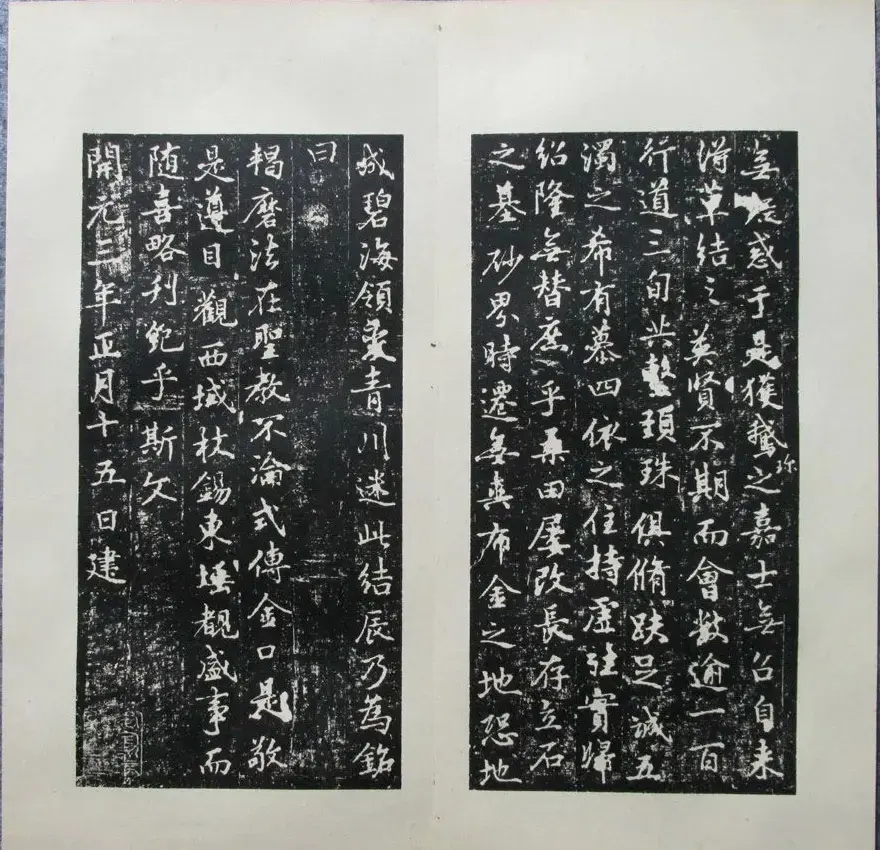 無 惑于是獲鵝珎之嘉士無召自来
得草結之英賢不期而會數逾一百
行道三旬共 頚珠俱脩趺足誠五
濁之希有慕四依之住持虚往實歸
紹隆無替庶乎桑田屡改長存立石
之基砂界時遷無爽布金之地恐地
成碧海領變青川述此結辰乃為銘
曰
羯磨法在聖教不淪式傳金口是敬
是遵目觀西域杖錫東埵覩盛事而
随喜略刊紀乎斯文
開元三年正月十五日建